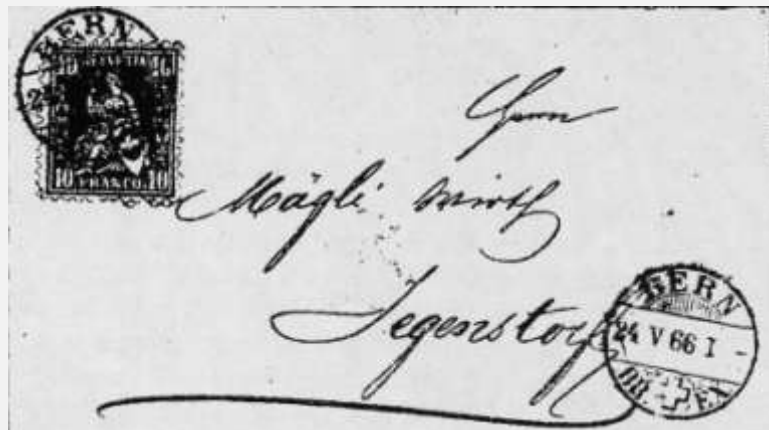 BERN
10 HELVETIA 10
10 FRANCO 10
Herrn
Mägli Wirth
Jegenstorf
BERN
24 V 66 I -
BR. EX